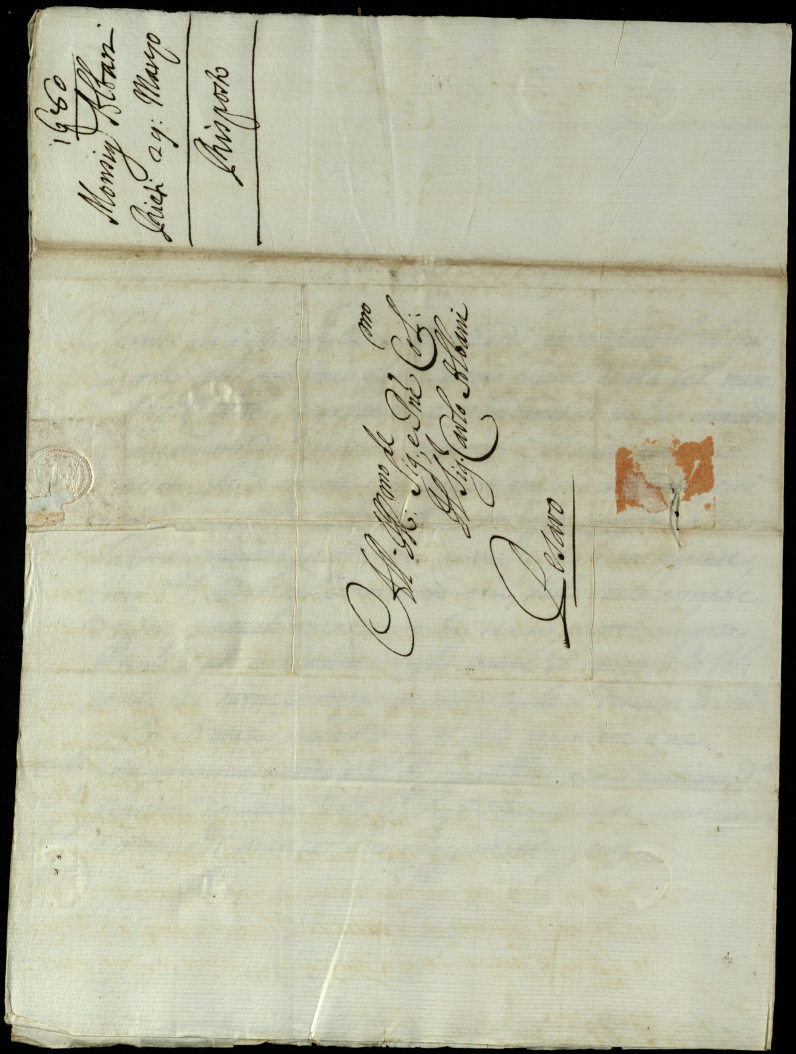 1680
Monsig Albani
Rieti 29: Marzo
Risposto
All Ill.mo Sig. e Pne Col:mo
Il Sig. Carlo Albani
Pesaro